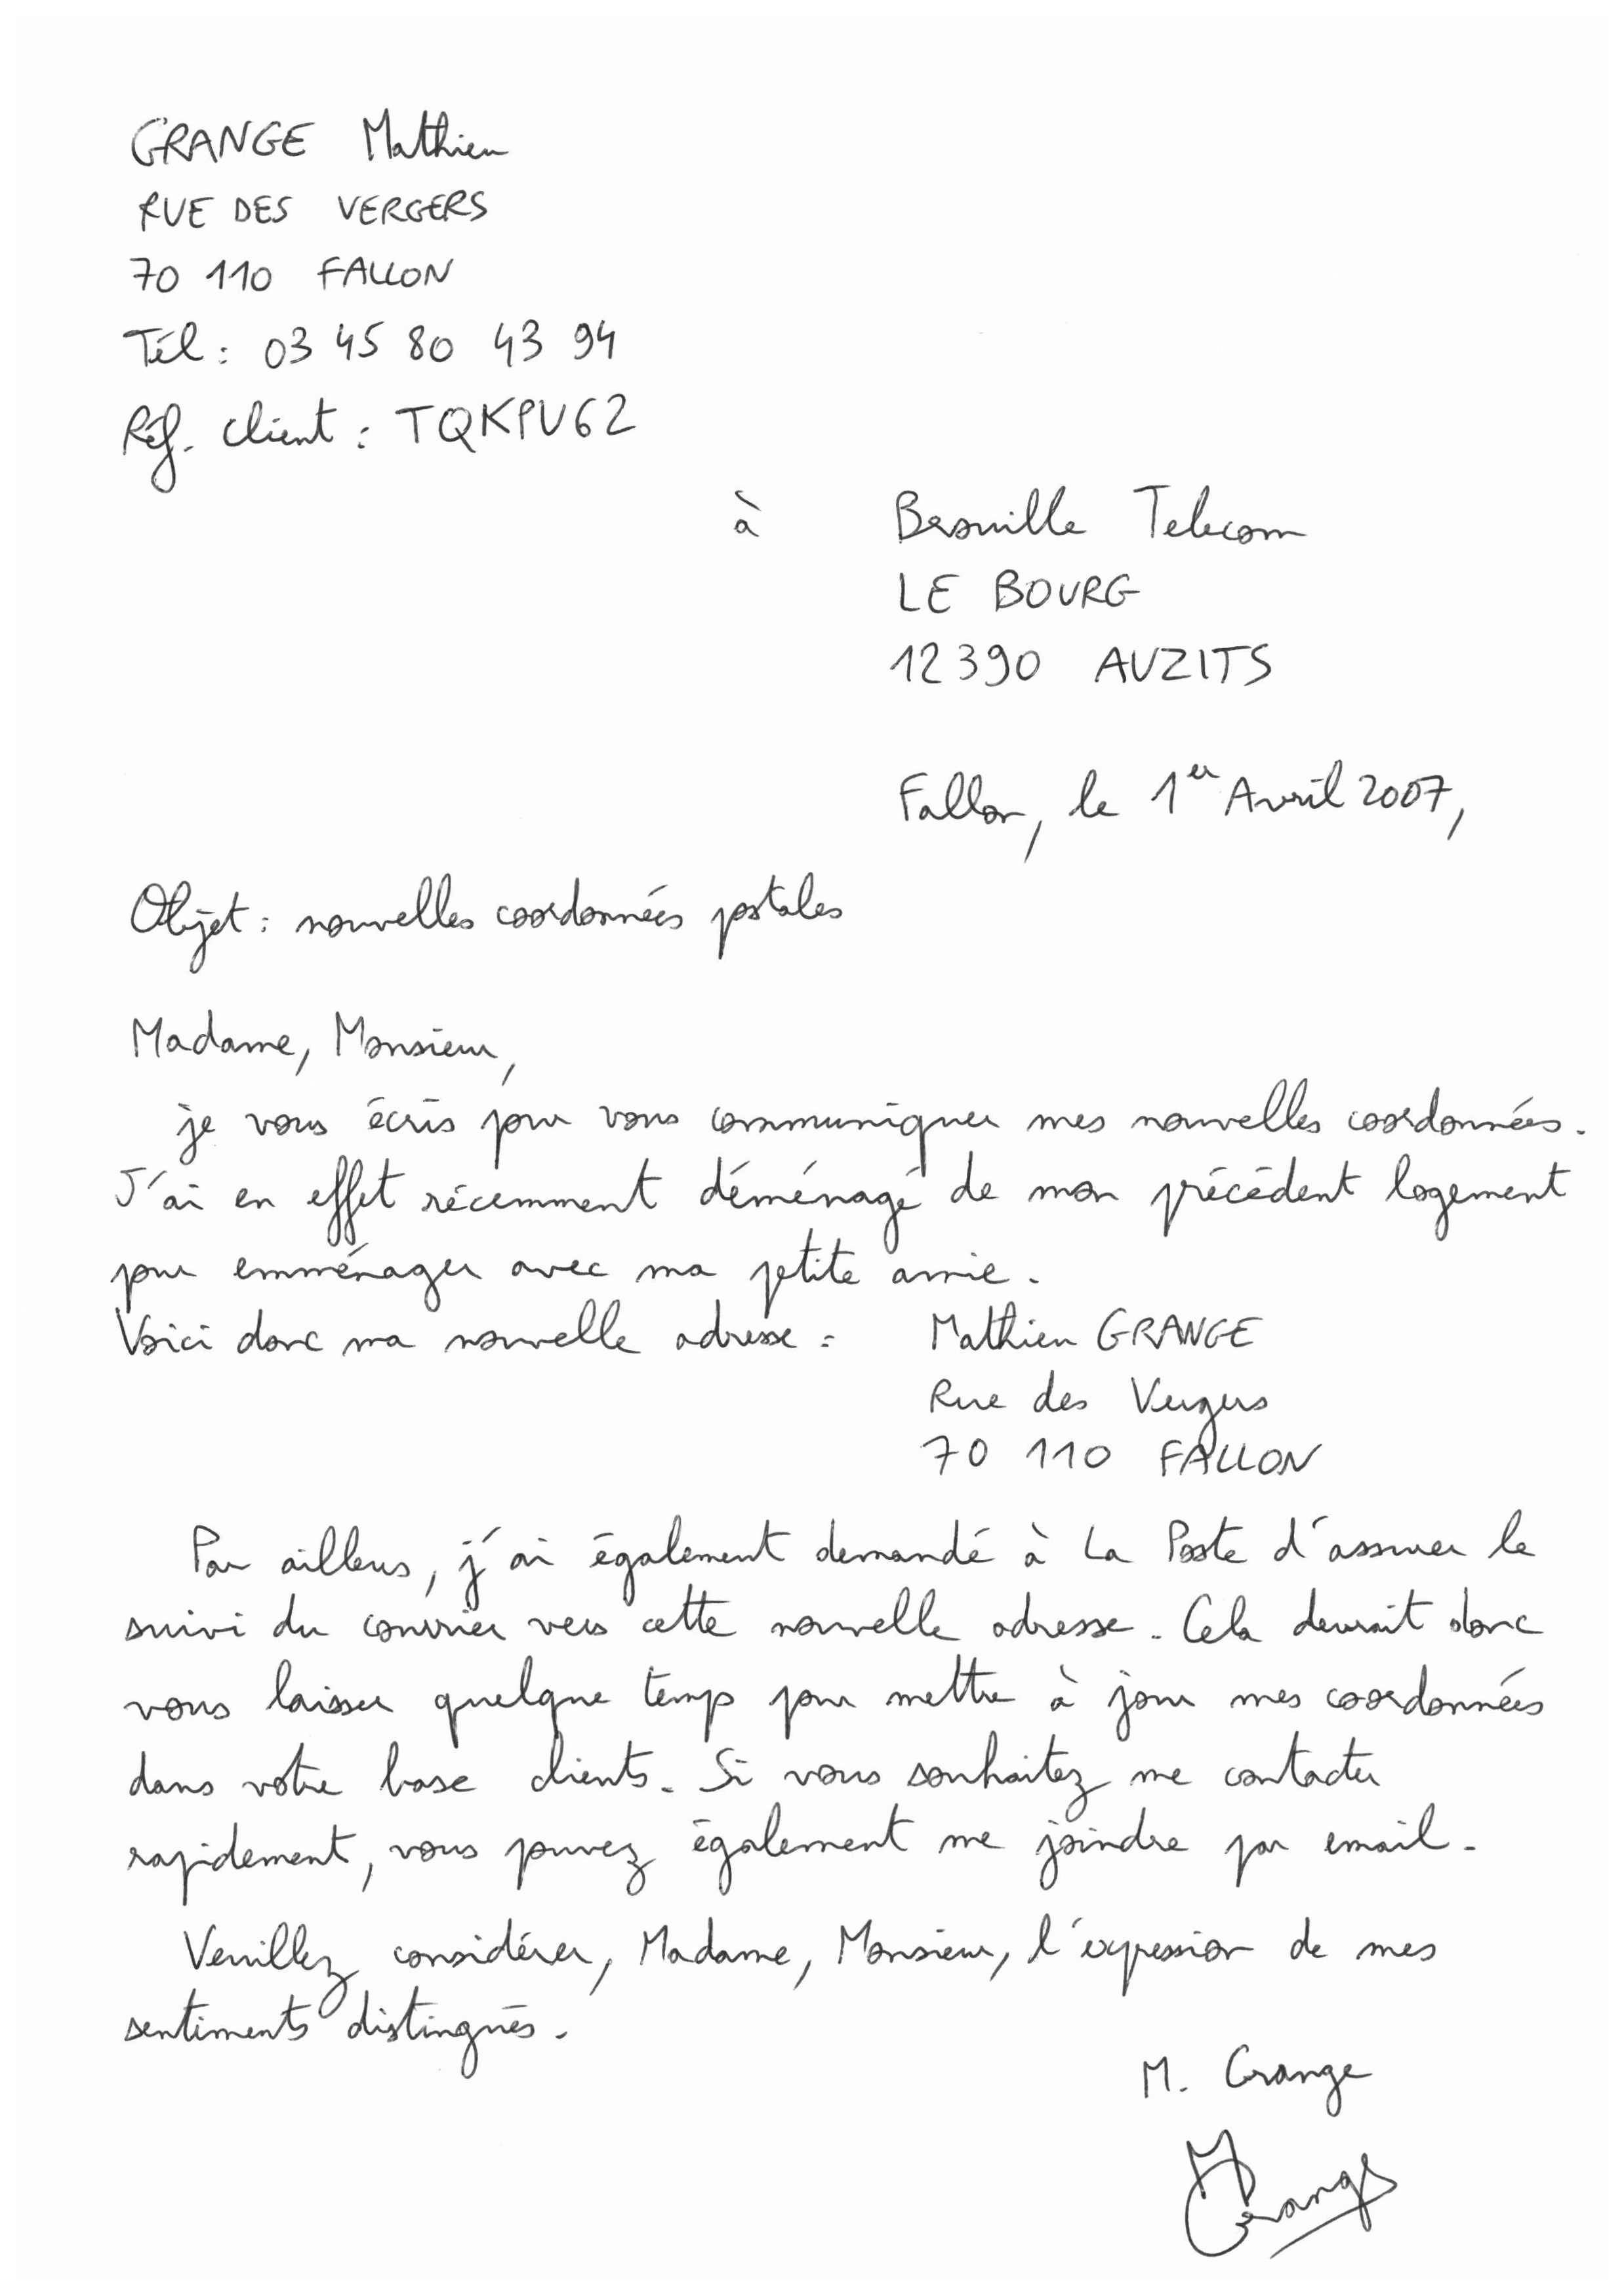 GRANGE Mathieu
RUE DES VERGERS
70 110 FALLON
Tél : 03 45 80 43 94
Réf. client : TQKPV62
à Brouille Telecom
LE BOURG
12390 AUZITS
Fallon, le 1er Avril 2007,
Objet : nouvelles coordonnées postales
Madame, Monsieur,
je vous écris pour vous communiquer mes nouvelles coordonnées.
J'ai en effet récemment déménagé de mon précédent logement
pour emménager avec ma petite amie.
Voici donc ma nouvelle adresse : Mathieu GRANGE
Rue des Vergers
70 110 FALLON
Par ailleurs, j'ai également demandé à La Poste d'assurer le
suivi du courrier vers cette nouvelle adresse. Cela devrait donc
vous laisser quelque temps pour mettre à jour mes coordonnées
dans votre base clients. Si vous souhaitez me contacter
rapidement, vous pouvez également me joindre par email.
Veuillez considérer, Madame, Monsieur, l'expression de mes
sentiments distingués.
M. Grange
MGrange